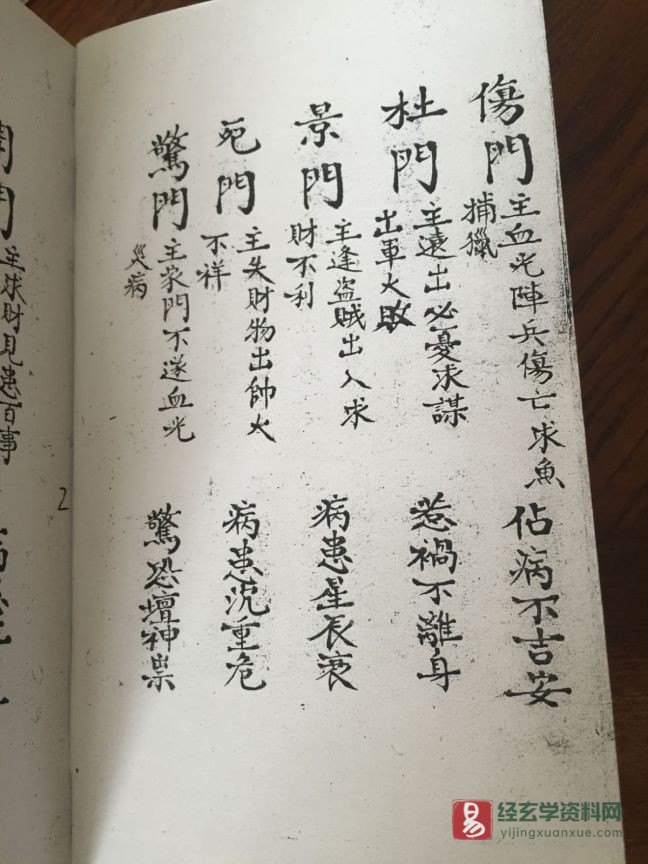 傷門 主血光陣兵傷亡求魚捕獵 佔病不吉安
杜門 主遠出必憂求謀出軍大敗 惹禍不離身
景門 主逢盜賊出入求財不利 病患星辰衰
死門 主失財物出帥大不祥 病患沉重危
驚門 主家門不遂血光災病 驚恐壇神祟
門 主求財見患百事
2
经玄学资料网
yijingxuanxue.com